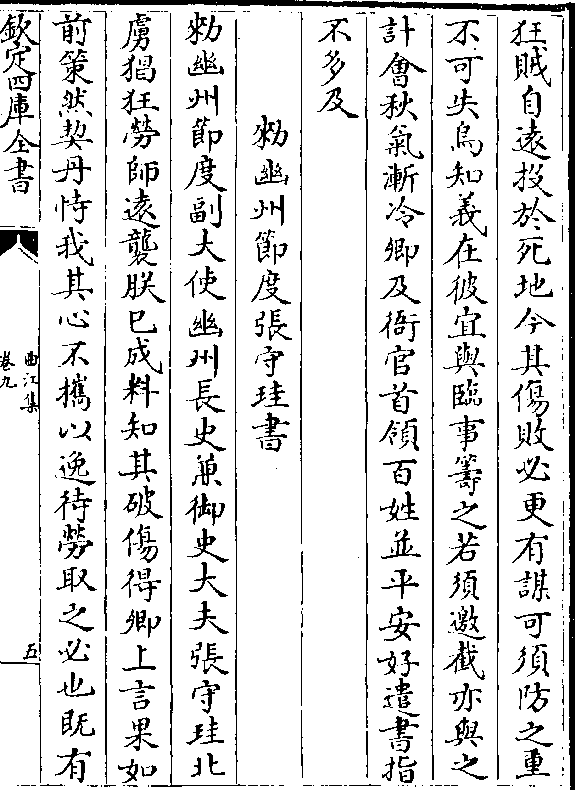 狂賊自遠投於死地今其傷敗必更有謀可須防之重
不可失烏知義在彼宜與臨事籌之若須邀截亦與之
計會秋氣漸冷卿及衙官首領百姓並平安好遣書指
不多及
勑幽州節度張守珪書
勑幽州節度副大使幽州長史兼御史大夫張守珪北
虜猖狂勞師遠襲朕已成料知其破傷得卿上言果如
前策然契丹恃我其心不攜以逸待勞取之必也既有
欽定四庫全書
曲江集
卷九
五